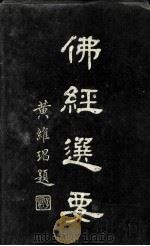 佛經選要
黃維琩題